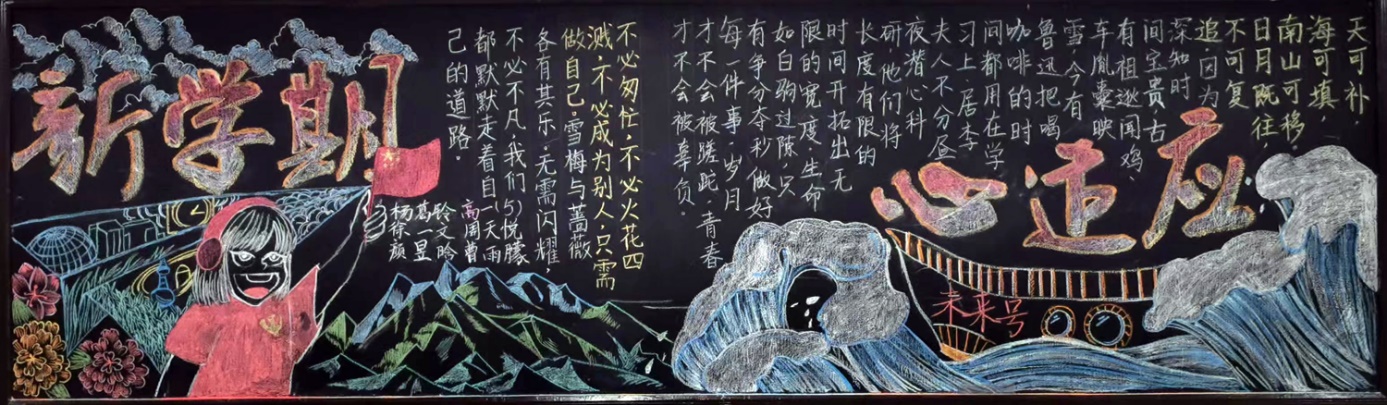 新学期
心适应
天可补,
海可填,
南山可移,
日月既往,
不可复
追因为
深知时
间宝贵古
有祖逖闻鸡,
车胤囊映
雪今有
鲁迅把喝
咖啡的时
间都用在学
习上居李
夫人不分昼
夜潜心科
研,他们将
长度有限的
时间开拓出无
限的宽度生命
如白驹过隙只
有争分夺秒做好
每一件事,岁月
才不会被蹉跎,青春
才不会被辜负。
不必匆忙,不必火花四
溅,不必成为别人,只需
做自己。雪梅与蔷薇
各有其乐,无需闪耀,
不必不凡,我们
都默默走着自
己的道路。
高一(5)
周天悦
曾雨朦
文晗
葛一昱
杨徐颜
未来号